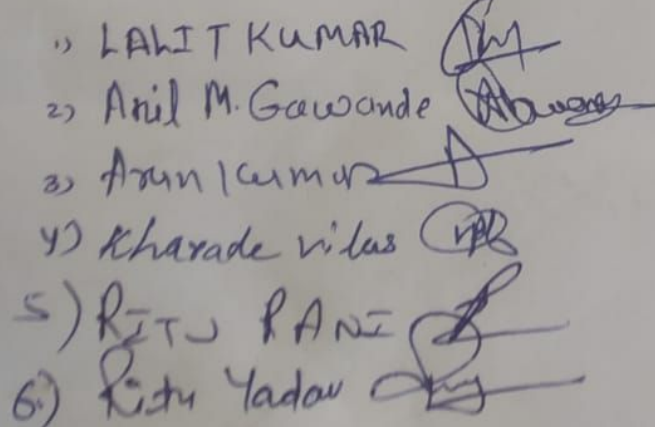 1) LALIT KUMAR
2) Anil M. Gawande
3) Arun Kumar
4) Kharade vilas
5) RITU RANI
6.) Ritu Yadav